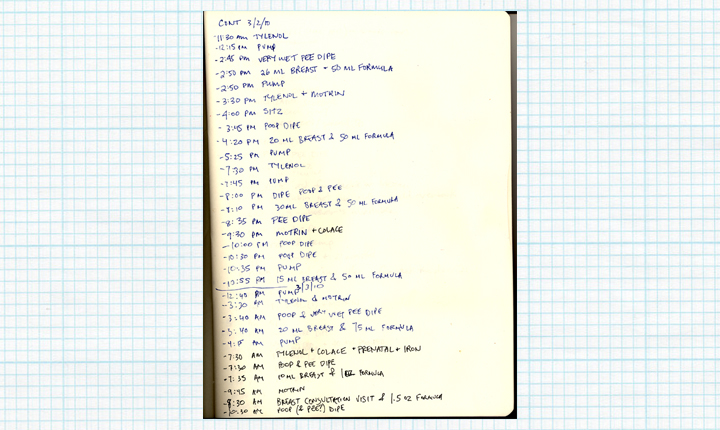 CONT 3/2/10
11:30 am TYLENOL
-12:15 PM PUMP
-2:45 PM VERY WET PEE DIPE
-2:50 PM 26 ML BREAST + 50 ML FORMULA
-2:50 PM PUMP
-3:30 PM TYLENOL + MOTRIN
-4:00 PM SITZ
-3:45 PM POOP DIPE
-4:20 PM 20 ML BREAST & 50 ML FORMULA
-5:25 PM PUMP
-7:30 PM TYLENOL
-7:45 PM PUMP
-8:00 PM DIPE POOP & PEE
-8:10 PM 30ML BREAST & 50 ML FORMULA
-8:35 PM PEE DIPE
-9:30 PM MOTRIN + COLACE
-10:00 PM POOP DIPE
-10:30 PM POOP DIPE
-10:35 PM PUMP
-10:55 PM 15 ML BREAST & 50 ML FORMULA
3/3/10
-12:40 AM PUMP
-3:30 AM TYLENOL & MOTRIN
-3:40 AM POOP & VERY WET PEE DIPE
-3:40 AM 20 ML BREAST & 75 ML FORMULA
AM PUMP
-7:30 AM TYLENOL + COLACE + PRENATAL + IRON
-7:30 AM POOP & PEE DIPE
-7:35 AM 10 ML BREAST & 1 OZ FORMULA
-9:45 AM MOTRIN
-8:30 AM BREAST CONSULTATION VISIT & 1.5 OZ FORMULA
-10:30 AM POOP (& PEE?) DIPE